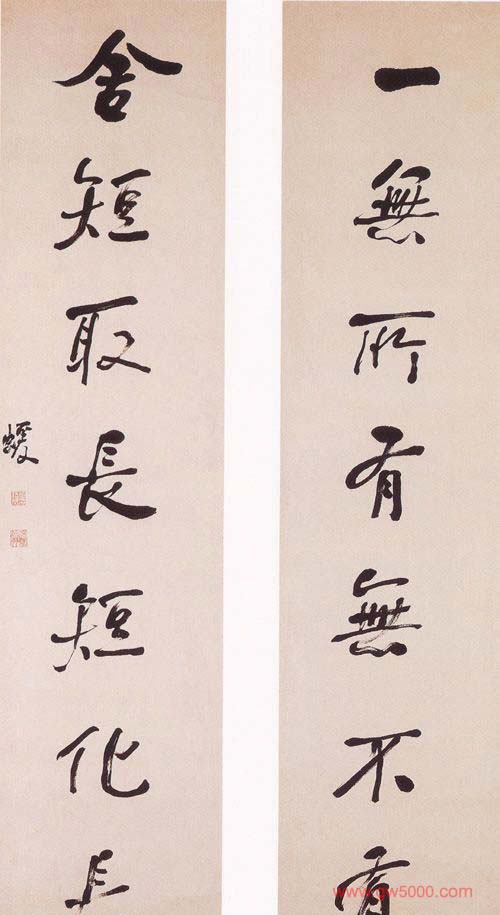 一無所有無不有
舍短取長短化長
蝯叟
www.gw5000.com